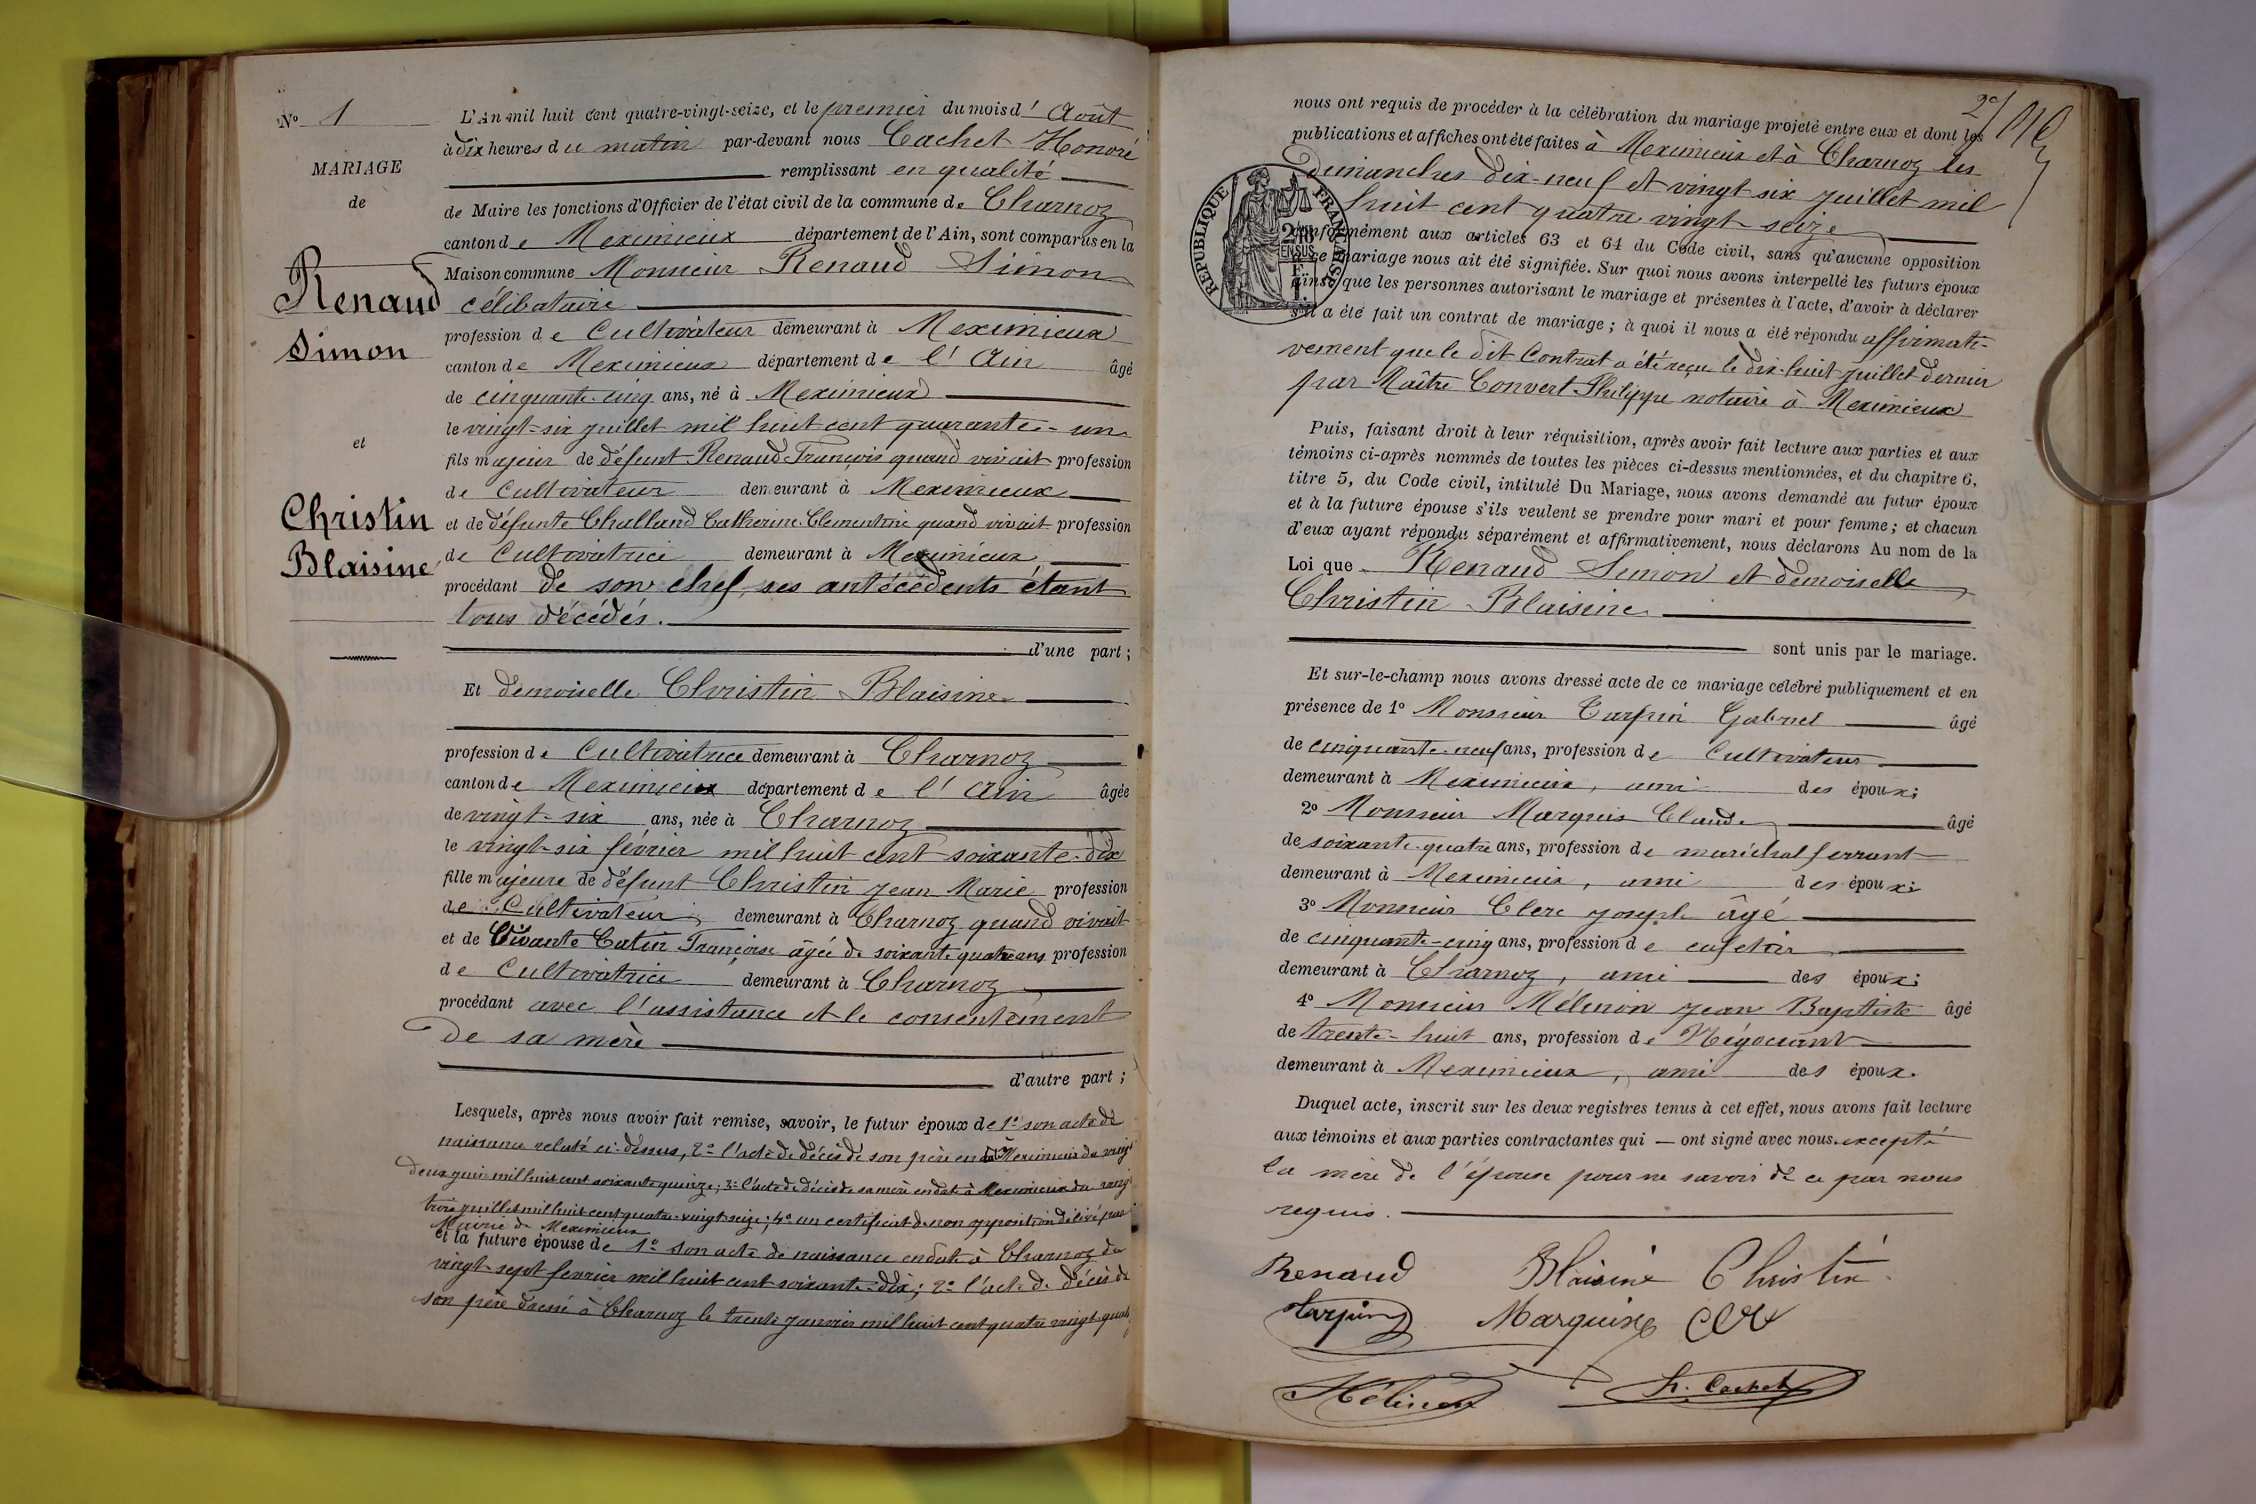 Nº 1
MARIAGE
de
Renaud
Simon
et
Christin
Blaisine
L'An mil huit cent quatre-vingt-seize, et le premier du mois d'Août
à dix heures du matin par-devant nous Cachet Honoré
remplissant en qualité
de Maire les fonctions d'Officier de l'état civil de la commune de Charnoz
canton de Meximieux département de l'Ain, sont comparus en la
Maison commune Monsieur Renaud Simon
célibataire
profession de Cultivateur demeurant à Meximieux
canton de Meximieux département de l'Ain âgé
de cinquante-cinq ans, né à Meximieux
le vingt-six juillet mil huit cent quarante-un
fils majeur de défunt Renaud François quand vivait profession
de Cultivateur demeurant à Meximieux
et de défunte Challand Catherine Clementine quand vivait profession
de Cultivatrice demeurant à Meximieux
procédant de son chef, ses antécédents étant
tous décédés.
d'une part ;
Et demoiselle Christin Blaisine
profession de Cultivatrice demeurant à Charnoz
canton de Meximieux département de l'Ain âgée
de vingt-six ans, née à Charnoz
le vingt-six février mil huit cent soixante-dix
fille majeure de défunt Christin Jean Marie profession
de Cultivateur, demeurant à Charnoz quand vivait
et de Vivante Catin Françoise âgée de soixante quatre ans profession
de Cultivatrice demeurant à Charnoz
procédant avec l'assistance et le consentement
de sa mère
d'autre part ;
Lesquels, après nous avoir fait remise, savoir, le futur époux de 1º son acte de
naissance relaté ci-dessus, 2º l'acte de décès de son père en à Meximieux du vingt
deux juin mil huit cent soixante quinze ; 3º l'acte de décès de sa mère en date à Meximieux du vingt
trois juillet mil huit cent quatre-vingt-seize ; 4º un certificat de non opposition délivré par
Mairie de Meximieux
et la future épouse de 1º son acte de naissance en date à Charnoz du
vingt-sept fevrier mil huit cent soixante-dix ; 2º l'acte de décès de
son père dressé à Charnoz le trente janvier mil huit cent quatre vingt quatre
2e/
nous ont requis de procéder à la célébration du mariage projeté entre eux et dont les
publications et affiches ont été faites à Meximieux et à Charnoz les
dimanches dix-neuf et vingt-six juillet mil
huit cent quatre vingt-seize
RÉPUBLIQUE FRANÇAISE
conformément aux articles 63 et 64 du Code civil, sans qu'aucune opposition
à ce mariage nous ait été signifiée. Sur quoi nous avons interpellé les futurs époux
ainsi que les personnes autorisant le mariage et présentes à l'acte, d'avoir à déclarer
s'il a été fait un contrat de mariage ; à quoi il nous a été répondu affirmati-
vement que le dit Contrat a été reçu le dix-huit juillet dernier
par Maître Convert Philippe notaire à Meximieux
Puis, faisant droit à leur réquisition, après avoir fait lecture aux parties et aux
témoins ci-après nommés de toutes les pièces ci-dessus mentionnées, et du chapitre 6,
titre 5, du Code civil, intitulé Du Mariage, nous avons demandé au futur époux
et à la future épouse s'ils veulent se prendre pour mari et pour femme ; et chacun
d'eux ayant répondu séparément et affirmativement, nous déclarons Au nom de la
Loi que Renaud Simon et demoiselle
Christin Blaisine
sont unis par le mariage.
Et sur-le-champ nous avons dressé acte de ce mariage célébré publiquement et en
présence de 1º Monsieur Turpin Gabriel âgé
de cinquante-neuf ans, profession de Cultivateur
demeurant à Meximieux, ami des époux ;
2º Monsieur Marquis Claude âgé
de soixante-quatre ans, profession de maréchal ferrant
demeurant à Meximieux, ami des époux ;
3º Monsieur Clerc Joseph âgé
de cinquante-cinq ans, profession de cafetier
demeurant à Charnoz, ami des époux ;
4º Monsieur Mélinon Jean Baptiste âgé
de trente-huit ans, profession de Négociant
demeurant à Meximieux, ami des époux.
Duquel acte, inscrit sur les deux registres tenus à cet effet, nous avons fait lecture
aux témoins et aux parties contractantes qui — ont signé avec nous. excepté
la mère de l'épouse pour ne savoir de ce par nous
requis.
Renaud Blaisine Christin
Turpin Marquis
Mélinon h. Cachet